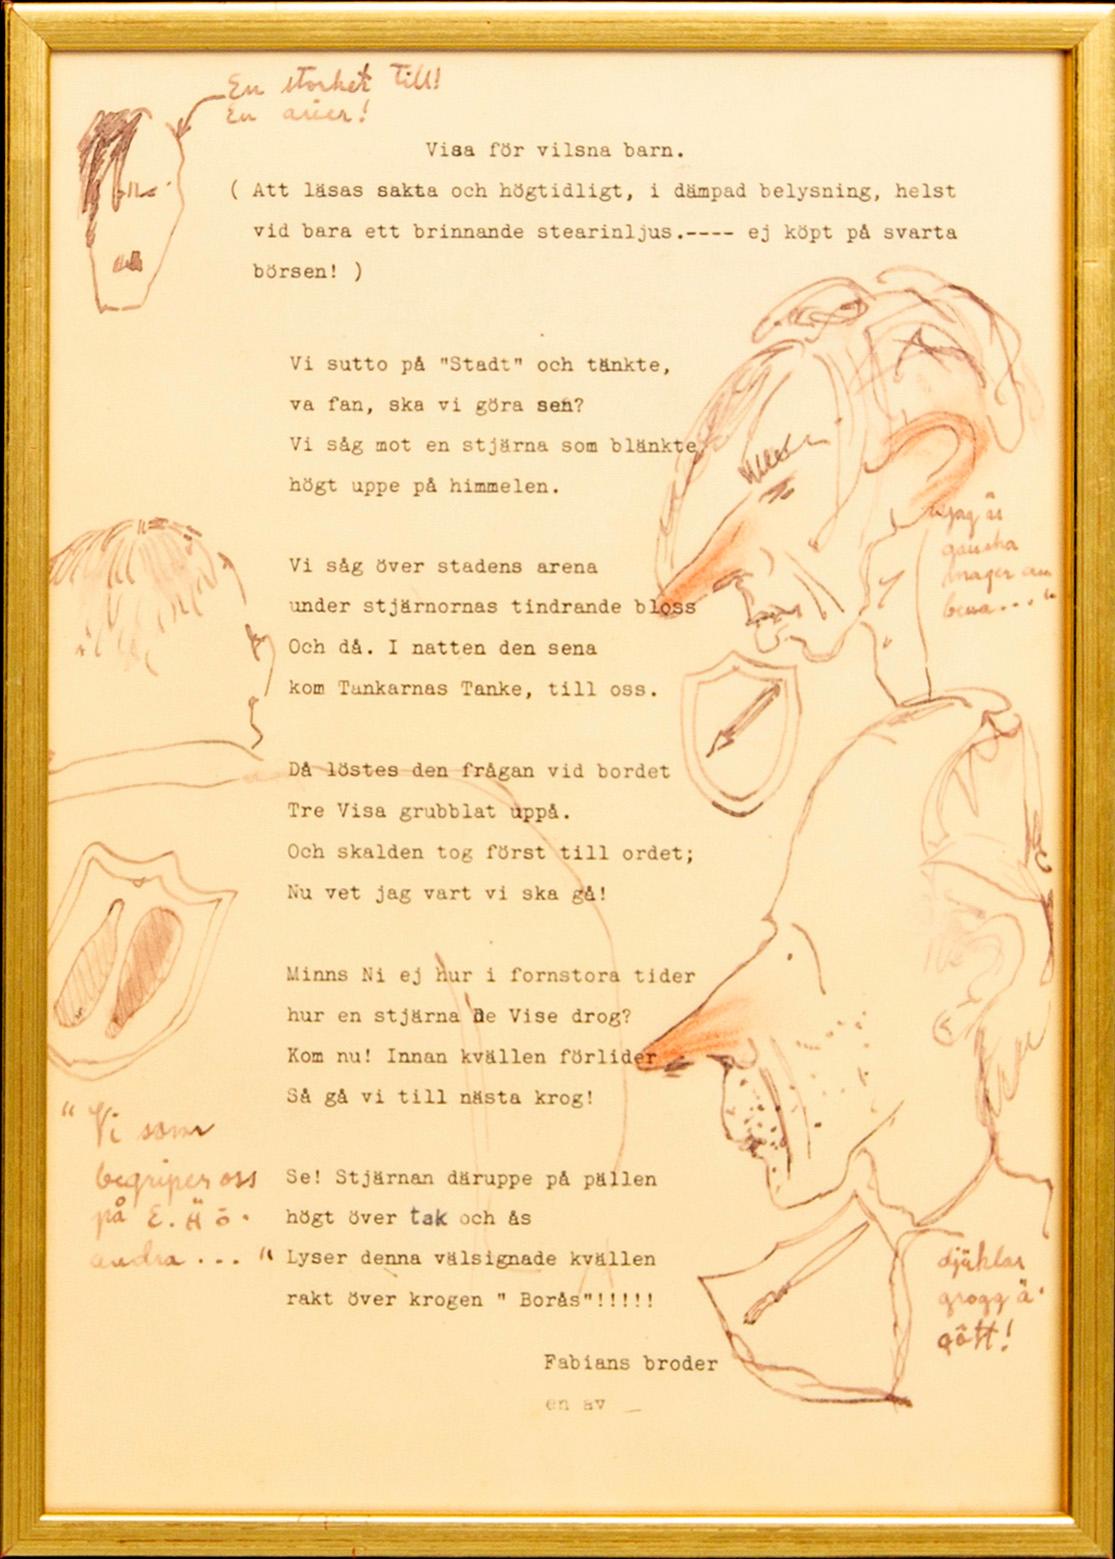 En storhet till!
En arier!
Visa för vilsna barn.
( Att läsas sakta och högtidligt, i dämpad belysning, helst
vid bara ett brinnande stearinljus.---- ej köpt på svarta
börsen! )
Vi sutto på "Stadt" och tänkte,
va fan, ska vi göra sen?
Vi såg mot en stjärna som blänkte
högt uppe på himmelen.
"jag är
ganska
mager om
bena..."
Vi såg över stadens arena
under stjärnornas tindrande bloss
Och då. I natten den sena
kom Tankarnas Tanke, till oss.
Då löstes den frågan vid bordet
Tre Visa grubblat uppå.
Och skalden tog först till ordet;
Nu vet jag vart vi ska gå!
Minns Ni ej hur i fornstora tider
hur en stjärna de Vise drog?
Kom nu! Innan kvällen förlider
Så gå vi till nästa krog!
"Vi som
begriper oss
på E. Hö.
andra ... "
Se! Stjärnan däruppe på pällen
högt över tak och ås
Lyser denna välsignade kvällen
rakt över krogen " Borås"!!!!!
djäklar
grogg ä'
gôtt!
Fabians broder
en av